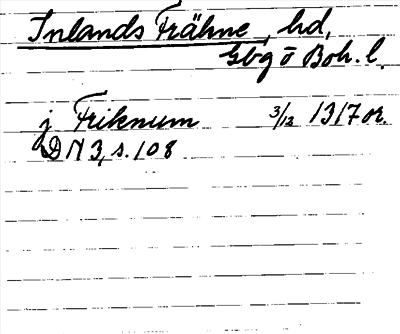 Inlands Fräkne, hd,
Gbg o Boh. l.
j Friknum 3/12 1317 or.
DN 3, s. 108